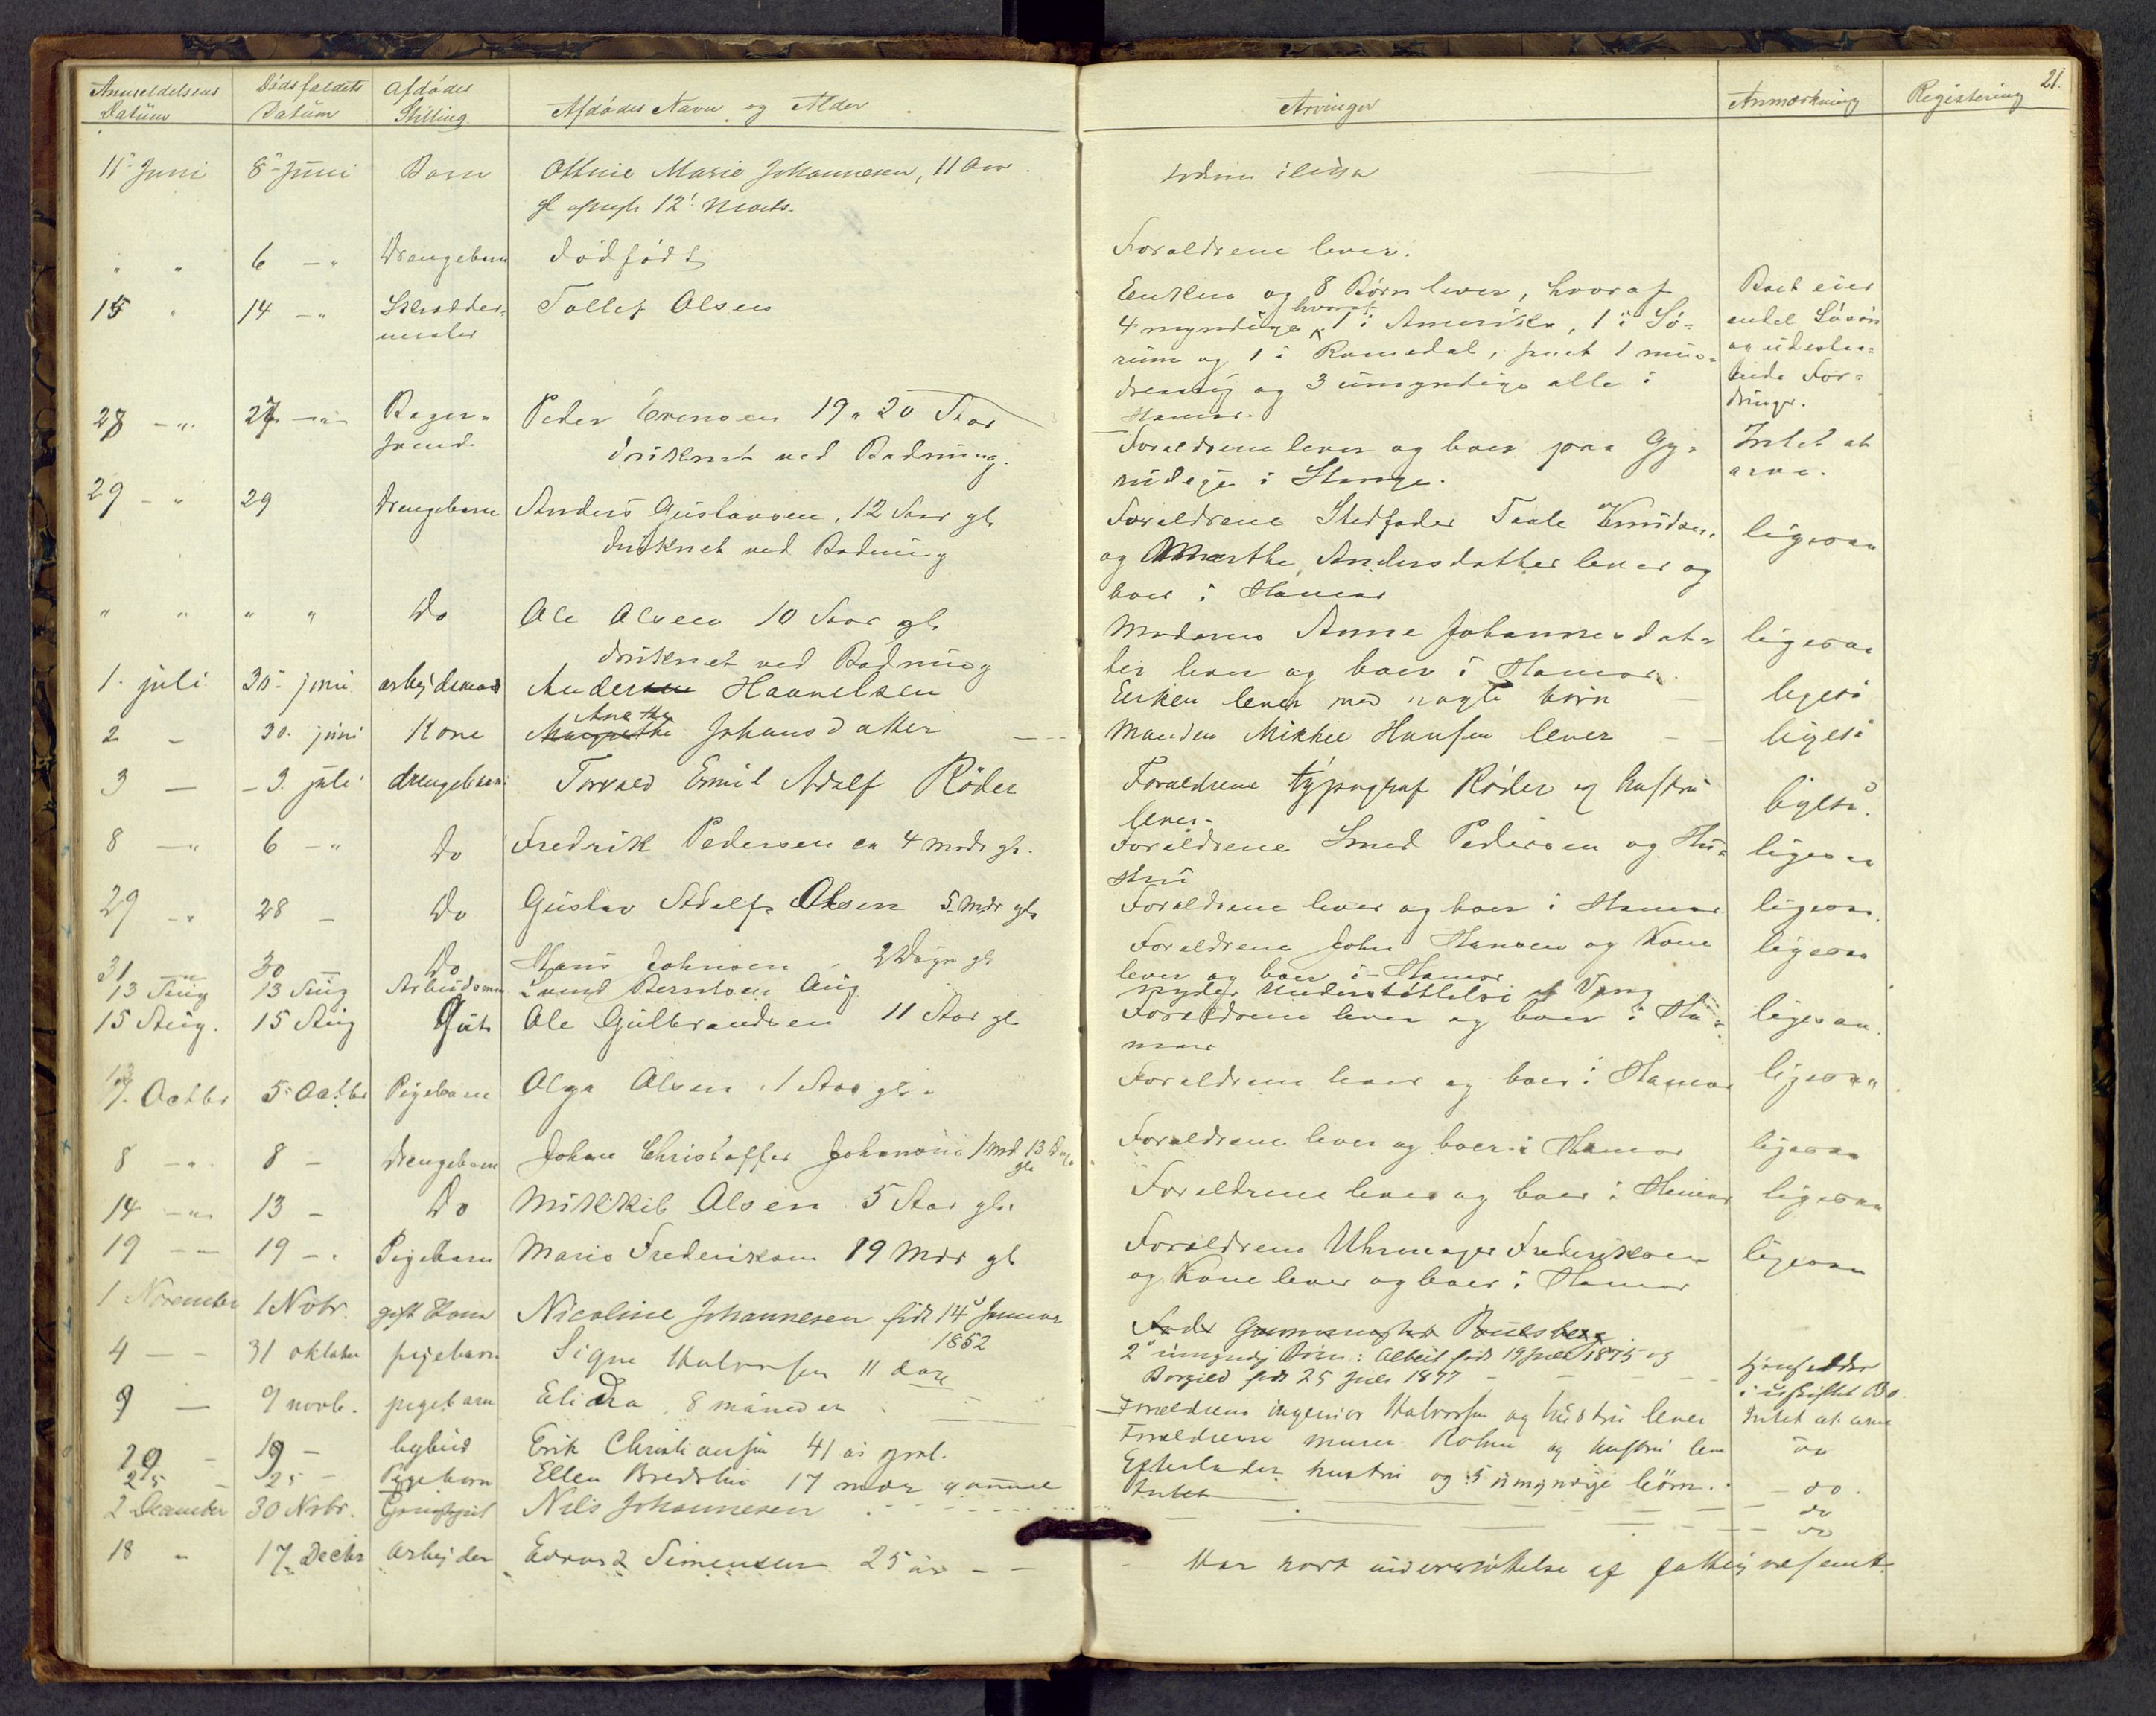 21.
Anmeldelsens Datum
Dødsfaldets Datum
Afdødes Stilling
Afdødes Navn og Alder
Arvinger
Anmærkning
Registering
11' Juni 8' Juni Barn Marie Johannesen, 11 Aar
gl 12' Marts.
" " 6 - " Drengebarn Dødfødt Forældrene lever.
15 " 14 - " Skrædder- Tollef Olsen Enken og 8 Børn lever, hvoraf Boet eier
mester 4 myndige hvoraf 1 i Amerika, 1 i Sø- endel Løsøre
rum og 1 i Romedal, samt 1 min- og udestaa-
dreaarig og 3 umyndige alle i ende For-
Hamar. dringer.
28 - " 27 - " Bager- Peder Evensen 19 a 20 Aar Forældrene lever og boer paa Gy- Intet at
svend. druknet ved Badning. i Stange. arve.
29 - " 29 Drengebarn Anders Gustavsen, 12 Aar gl. Forældrene Stedfader Taale Knudsen ligesaa
druknet ved Badning og Marthe Andersdatter lever og
boer i Hamar
" " " " Do Ole Olsen 10 Aar gl. Moderen Anne Johannesdat- ligesaa
druknet ved Badning ter lever og boer i Hamar.
1. juli 30. juni arbejdsmand Anders Haavelsen Enken lever med voxne børn ligeså
2 - 30. juni Kone Anethe Johansdatter Manden Mikkel Hansen lever ligeså
3 - 3. juli drengebarn Torvald Emil Adolf Røder Forældrene typograf Røder og hustru ligeså.
lever.
8 - " 6 - " Do Fredrik Pedersen ca 4 mndr gl. Forældrene Smed Pedersen og Hu- ligesaa
stru
29 - " 28 - Do Gustav Adolf Olsen 5 Mdr gl. Forældrene lever og boer i Hamar ligesaa.
31 - 30 - Do Hans Johnsen 2 Døgn gl Forældrene John Hansen og Kone ligesaa
lever og boer i Hamar
13 Aug 13 Aug Arbeidsmand nyder Understøttelse af Vang
15 Aug. 15 Aug Gut Ole Gulbrandsen 11 Aar gl. Forældrene lever og boer i Ha- ligesaa.
mar
7. Octbr 5. Octbr Pigebarn Olga Olsen 1 Aar gl. Forældrene lever og boer i Hamar ligesaa
8 - " 8 - Drengebarn Johan Christoffer Johansen 1 Md 13 Dage gl. Forældrene lever og boer i Hamar ligesaa
14 - " 13 - Do Mikkel Olsen 5 Aar gl. Forældrene lever og boer i Hamar ligesaa
19 - 19 - " Pigebarn Marie Frederiksen 19 Mdr gl Forældrene Uhrmager Frederiksen ligesaa
og Kone lever og boer i Hamar
1 November 1 Nobr. gift Kone Nicoline Johannesen født 14' Januar
1852
2 umyndig Børn: Albert født 19 Juli 1875 og
Borgild født 25 Juli 1877 i uskiftet Bo
4 - - 31 oktober pigebarn Signe Halvorsen 11 dage Forældrene ingeniør Halvorsen og hustru lever Intet at arve
9 - 9 novb. pigebarn 8 måneder Forældrene murer Holm og hustru lever do
20 - 19 - legbud Erik Christiansen 41 år gml. Efterlader hustru og 5 umyndige børn. do.
25 - 25 - Pigebarn Ellen Bredslie 17 mdr gammel Intet do
2 December 30 Nobr. Nils Johannesen do
18 " 17 Decbr Arbejder Edvard Simensen 25 år - - Har nydt understøttelse af fattigvæsenet.